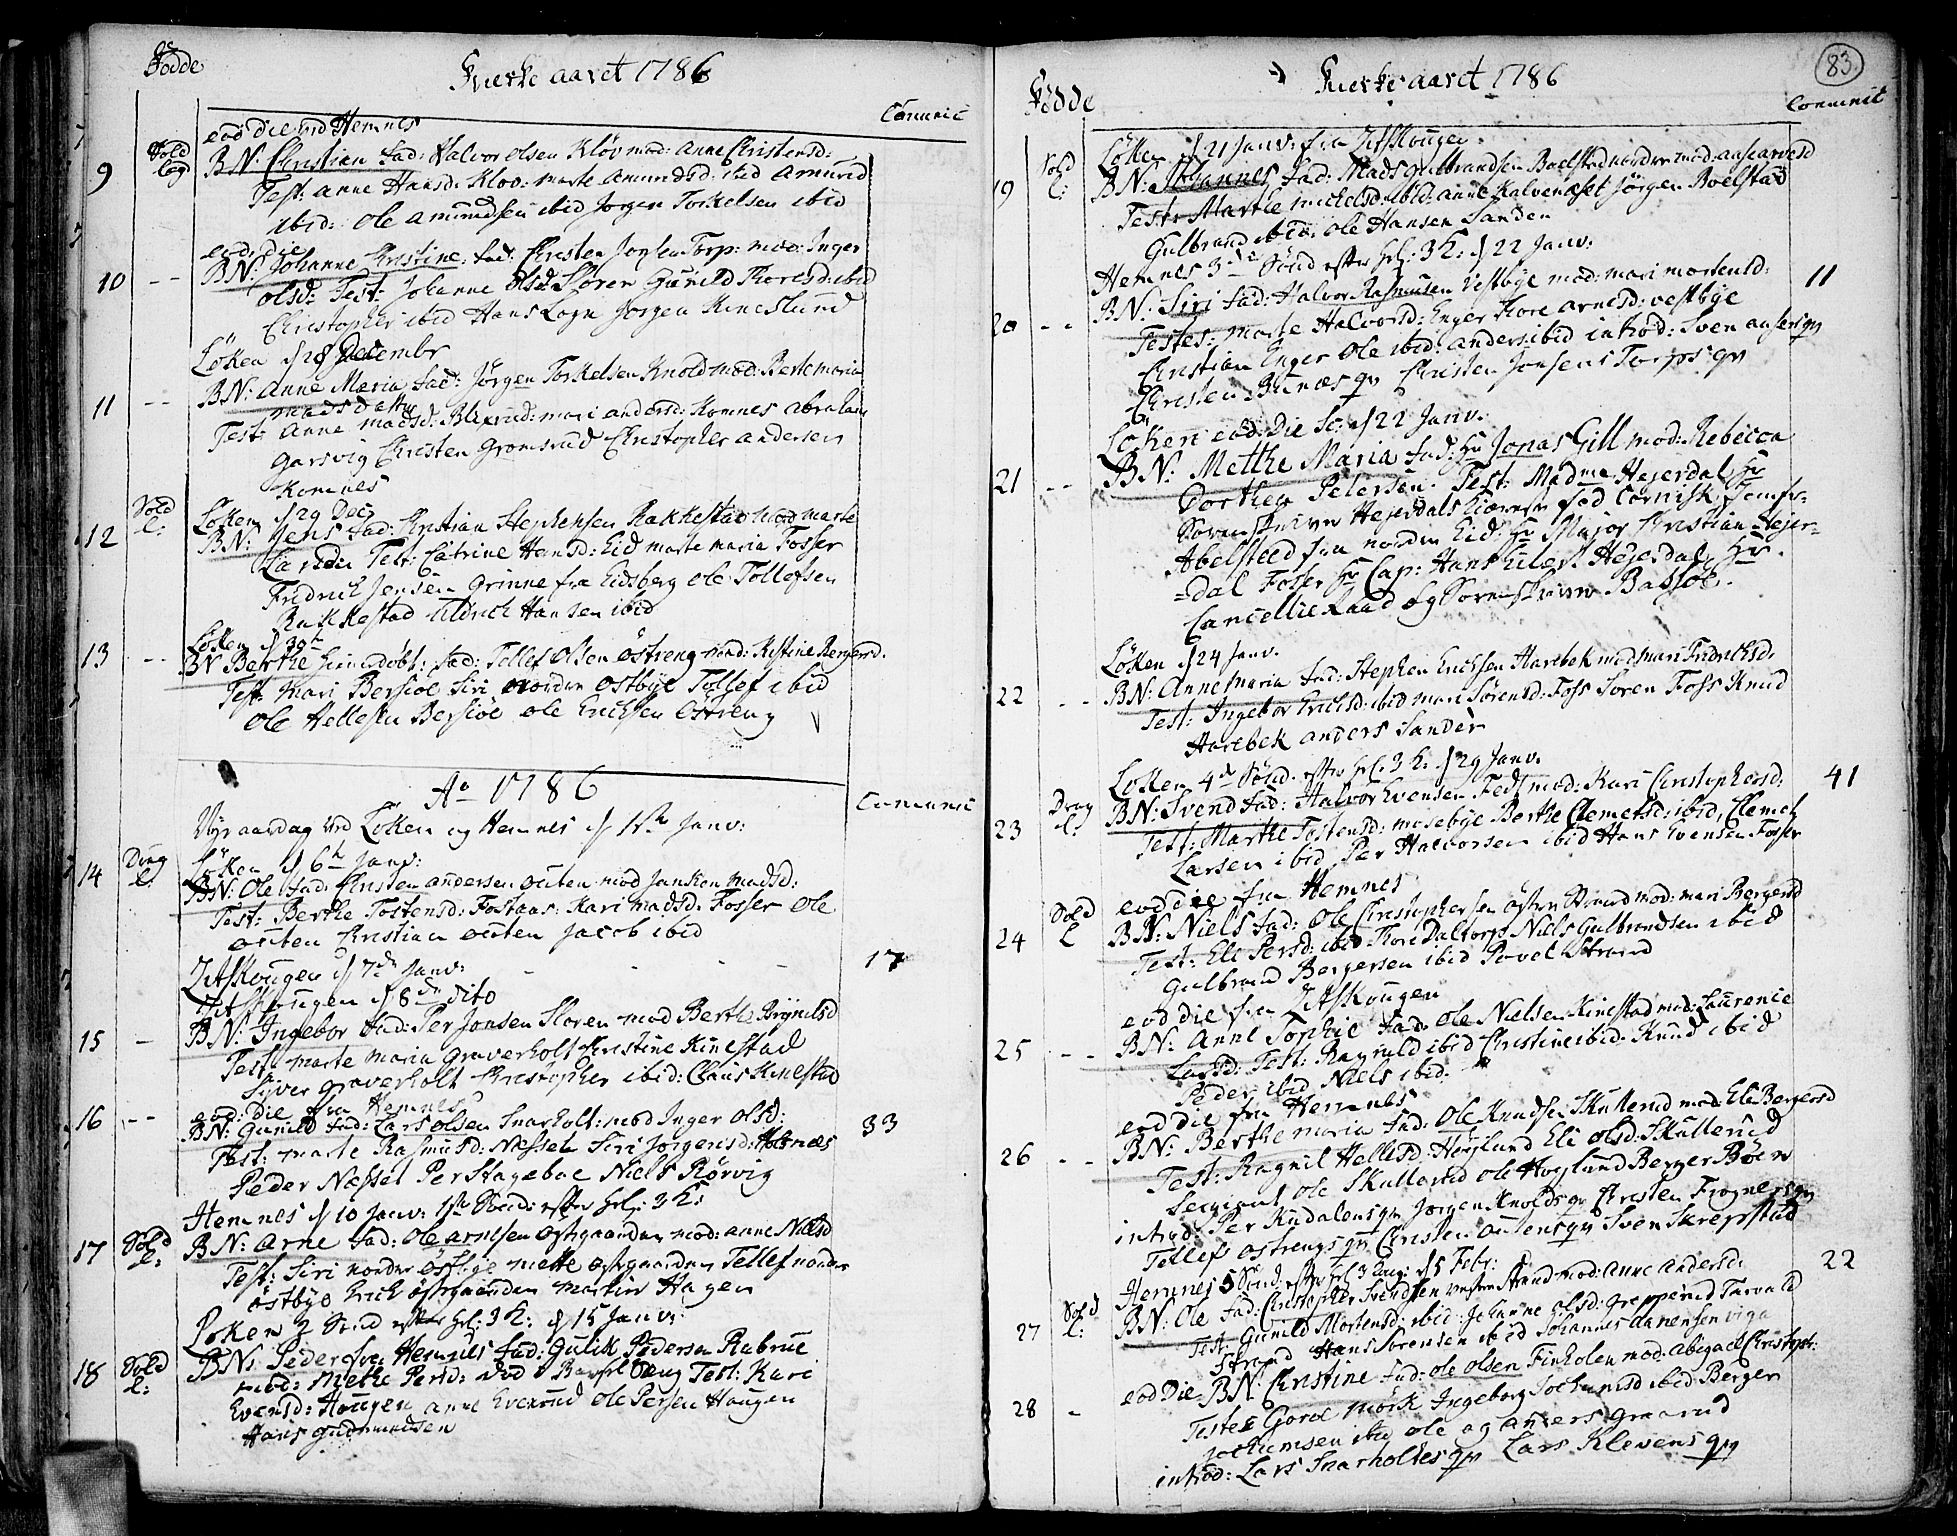 Fødde
Kierke aaret 1786
Comunic
eod die ved Hemnes
9 Sold leg BN: Christian fad: Halvor Olsen Kløv mod: Anne Christensd:
Test: Anne Hansd: Klov: Marte Amundsd: ibid Amund
ibid: Ole Amundsen ibid Jørgen Torkelsen ibid
eod: die
10 -- BN: Johanne Christine: fad: Christen Jonsen Torp: mod: Inger
Olsd: Test: Johanne Olsd: Sloren Gunild Thoresd: ibid
Christopher ibid Hans Logn Jørgen Kineslund
Løken d 28 Decembr
11 -- BN: Anne Maria fad: Jørgen Torkelsen Knold mod: Berte Maria
Madsdatter
Test: Anne Madsd: Blixrud: Mari Andersd: Komnes Abraham
Garsvig Christen Gromsrud Christopher Andersen
Komnes
Løken d 29 Dec
12 Sold l: BN: Jens fad: Christian Stephensen Rakkestad mod Marte
Test: Catrine Hansd: Eid Marte Maria Fosser
Fridrich Jensen Grinne fra Eidsberg Ole Tollefsen
Rakkestad Aldrich Hansen ibid
Løken d 30th
13 -- BN Berthe hiemedøbt: fad: Tellef Olsen Østreng mod: Kistine Bergersd.
Test: Mari Bersiøe Siri nordre Østbye Tollef ibid
Ole Hellesen Bersiøe Ole Erichsen Østreng
Ao 1786
Comunic
Nyt aarsdag ved Løken og Hemnes d 1ste Janv:
Løken d 6te Janv:
14 Drag l: BN: Ole fad: Christen Andersen Outen mod Janken Madsd:
Test: Berthe Tostensd: Fostaas: Kari Madsd: Fosser Ole
Outen Christian Outen Jacob ibid
Zetskougen d 7de Janv: - - - - 17
Zetskougen d 8de dito
15 - BN: Ingebor fad: Per Jonsen Sloren mod Berthe Brynilsd
Test: Marte Maria Graverholt Christine Kinestad
Syver Graverholt Christopher ibid: Claus Kinestad
eod: die fra Hemnes
16 -- BN: Gunild fad: Lars Olsen Snarholt: mod Inger Olsd: 33
Test: Marte Rasmusd: Nessel Siri Jørgensd: Holtnæs
Peder Nessel Per Hageboe Niels Rørvig
Hemnes d 10 Janv: 1ste Sønd: efter hel: 3 K:
17 Sold l: BN: Arne fad: Ole Arnesen Østgaarden mod: Anne Nielsd
Test: Siri nordre Østbye Mette Østgaarden Tellef nordre
Østbye Erich Østgaarden Martin Hagen
Løken 2 Sønd efter hel: 3 K: d 15 Janv:
18 Sold l: BN: Peder fra Hemnes fad: Gulik Pedersen Rubrue
mod: Mette Persd: død i Barsel Seng Test: Kari
Evensd: Hougen Anne Evenrud Ole Persen Hougen
Hans Gudmundsen
83
Fødde
Kierke aaret 1786
Comunic
Løken d 21 Janv: fra Zetskougen
19 Sold l: BN: Johannes fad: Mads Gulbrandsen Boelstad nordre mod: Aase Arvesd
Test: Marthe Michelsd: ibid: Anne Kalvenæset Jørgen Boelstad
Gulbrand ibid: Ole Hansen Sanden
Hemnes 3die Sønd efter hel: 3 K: d 22 Janv:
20 -- BN: Siri fad: Halvor Rasmusen Vestbye mod: Mari Mortensd: 11
Testes: Marte Halvorsd: Enger Thore Arnesd: Vestbye
Christian Enger Ole ibid: Anders ibid introd: Sven Ausens qv
Christen Bunæs qv Christen Jonsens Torps qv
Løken eod: die sc: d 22 Janv:
21 -- BN: Metthe Maria fad: Hr Jonas Gill mod: Rebecca
Dorthea Petersen. Test: Madme Hejerdal Hr
Sorenskriver Hejerdals Kiæreste fød Cornisk Jomfr:
Abelsted fra nordre Eid: Hr Major Christian Hejer-
-dal Fosser Hr Cap: Hans Hejerdal, Hr
Cancellie Raad og Sorenskriver Bassøe.
Løken d 24 Janv.
22 -- BN: Anne Maria fad: Stephen Erichsen Harebek mod Mari Fridrichsd.
Test: Ingebor Erichsd: ibid Mari Sørensd: Foss Søren Foss Knud
Harebek Anders Sander
Løken 4de Sønd. efter hel: 3 K: d 29 Janv.
23 Drag l: BN: Svend fad: Halvor Evensen Fedt mod: Kari Christophersd: 41
Test: Marthe Tostensd: Mosebye Berthe Clemetsd: ibid, Clemet
Larsen ibid Per Halvorsen ibid Hans Evensen Fosser
eod die fra Hemnes
24 Sold l BN: Niels fad: Ole Christophersen østre Strand mod: Mari Bergersd
Test: Eli Persd: ibid Thore Daltorp Niels Gulbrandsen ibid
Gulbrand Bergersen ibid Povel Strand
eod die fra Zetskougen
25 --- BN: Anne Sophie fad: Ole Nielsen Kinestad mod: Laurence
Larsd: Test: Ragnild ibid Christine ibid: Knud ibid
Peder ibid Niels ibid:
eod die fra Hemnes
26 -- BN: Berthe Maria fad: Ole Knudsen Skullerud mod: Eli Bergersd
Test: Ragnil Hellesd: Høglund Eli Olsd: Skullerud
Sergiant Ole Skullerud Ole Høglund Berger Bøen
introd: Per Kudalens qv Jørgen Knolds qv Christen Frogners qv
Tellef Østrengs qv Christen Outens qv Sven Skrepstad
Hemnes 5 Sønd: efter hel 3 Kong: d 5 Febr: 22
27 Sold l: BN: Ole fad: Christopher Svendsen vestre Strand mod: Anne Andersd:
Test: Gunild Mortensd: ibid: Johanne Olsd: Grepperud Torvald
Strand Hans Sørensen ibid Johannes Viga
28 - eod die BN: Christine fad: Ole Olsen Finholen mod: Abigael Christophr:
Testes Goroe Mørk Ingeborg Jochumsd ibid Berger
Jochumsen ibid Ole og Anders Graarud
introd: Lars Snarholtes qv Lars Klevens qv